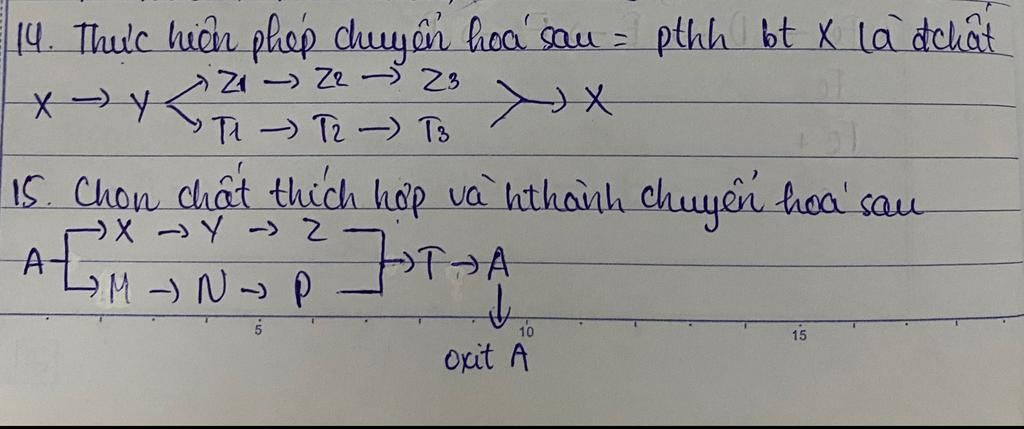 14. Thực hiện phép chuyển hoá sau = pthh bt X là đchất
Z1 → Z2 → Z3
X → Y → X
T1 → T2 → T3
15. Chọn chất thích hợp và hthành chuyển hoá sau
→ X → Y → Z
A → T → A
→ M → N → P
5 10 15
oxit A